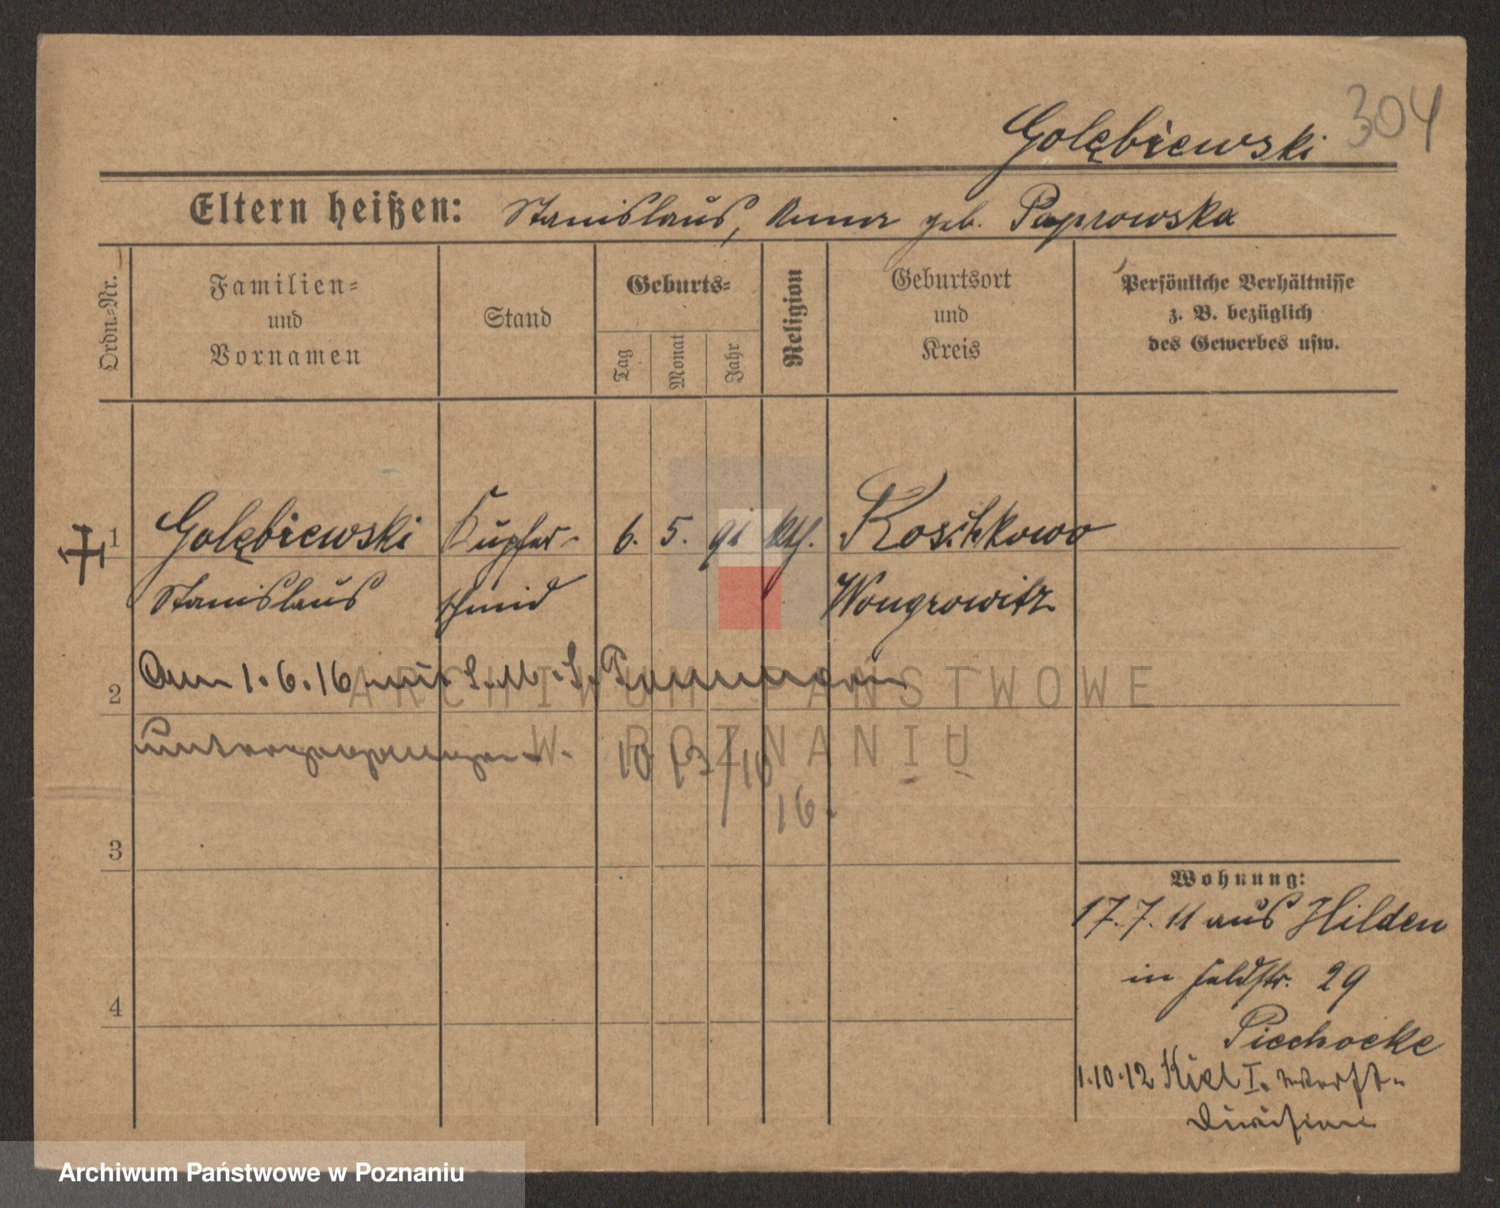 304
Golębiewski
Eltern heißen: Stanislaus, Anna geb. Paprowska
Ordn.-Nr.
Familien- und Vornamen
Stand
Geburts-
Tag
Monat
Jahr
Religion
Geburtsort und Kreis
Persönliche Verhältnisse
z. B. bezüglich
des Gewerbes usw.
1
Golębiewski Kupfer- 6. 5. 91 kth. Koschkowo
Stanislaus schmid Wongrowitz
2
Am 1.6.16 mit S.M.S. Pommern
untergegangen.
10 /16
16.
3
4
Wohnung:
17.7.11 aus Hilden
in Feldstr. 29
Piechocke
1.10.12 Kiel I. Werft-
Division
ARCHIWUM PAŃSTWOWE
W POZNANIU
Archiwum Państwowe w Poznaniu